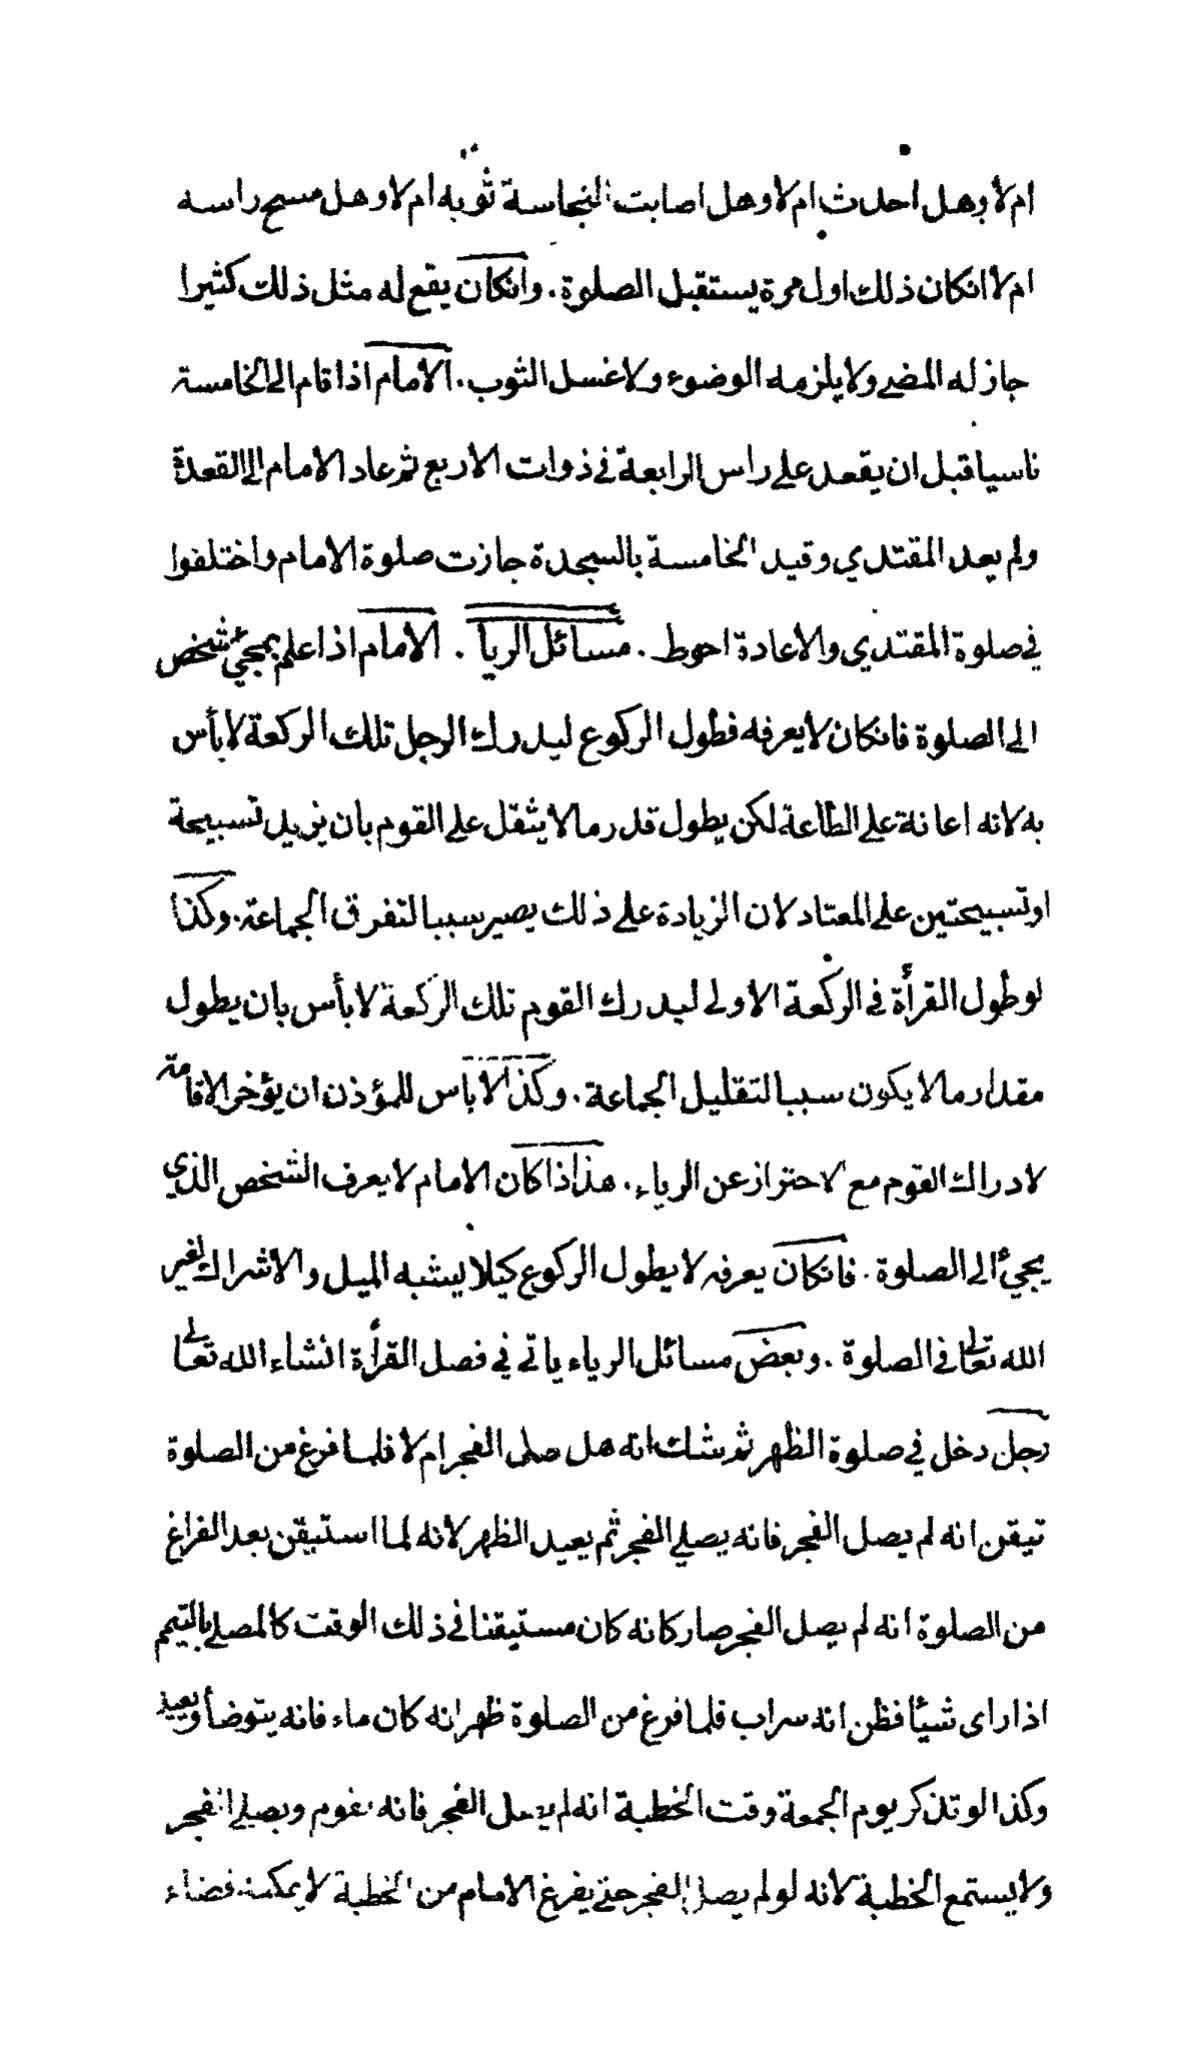 ام لا وهل احدث ام لا وهل اصابت النجاسة ثوبه ام لا وهل مسح راسه
ام لا انكان ذلك اول مرة يستقبل الصلوة . وانكان يقع له مثل ذلك كثيرا
جاز له المضي ولا يلزمه الوضوء ولا غسل الثوب . الامام اذا قام الى الخامسة
ناسيا قبل ان يقعد على راس الرابعة في ذوات الاربع ثم عاد الامام الى القعدة
ولم يعد المقتدي وقيد الخامسة بالسجدة جازت صلوة الامام واختلفوا
في صلوة المقتدي والاعادة احوط . مسائل الريا . الامام اذا علم بمجيئ شخص
الى الصلوة فانكان لا يعرفه فطول الركوع ليدرك الرجل تلك الركعة لا بأس
به لانه اعانة على الطاعة لكن يطول قدر ما لا يثقل على القوم بان يزيد تسبيحة
او تسبيحتين على المعتاد لان الزيادة على ذلك يصير سببا لتفرق الجماعة . وكذا
لو طول القرأة في الركعة الاولى ليدرك القوم تلك الركعة لا بأس بان يطول
مقدار ما لا يكون سببا لتقليل الجماعة . وكذا لا باس للمؤذن ان يؤخر الاقامة
لادراك القوم مع الاحتراز عن الرياء . هذا اذا كان الامام لا يعرف الشخص الذي
يجيئ الى الصلوة . فانكان يعرفه لا يطول الركوع كيلا يشبه الميل والاشراك لغير
الله تعالى في الصلوة . وبعض مسائل الرياء ياتي في فصل القرأة انشاء الله تعالى
رجل دخل في صلوة الظهر ثم شك انه هل صلى الفجر ام لا فلما فرغ من الصلوة
تيقن انه لم يصل الفجر فانه يصلي الفجر ثم يعيد الظهر لانه لما استيقن بعد الفراغ
من الصلوة انه لم يصل الفجر صار كانه كان مستيقنا في ذلك الوقت كالمصلي بالتيمم
اذا راى شيئا فظن انه سراب فلما فرغ من الصلوة ظهر انه كان ماء فانه يتوضأ ويعيد
وكذا لو تذكر يوم الجمعة وقت الخطبة انه لم يصل الفجر فانه يقوم ويصلي الفجر
ولا يستمع الخطبة لانه لو لم يصل الفجر حتى يفرغ الامام من الخطبة لا يمكنه قضاء